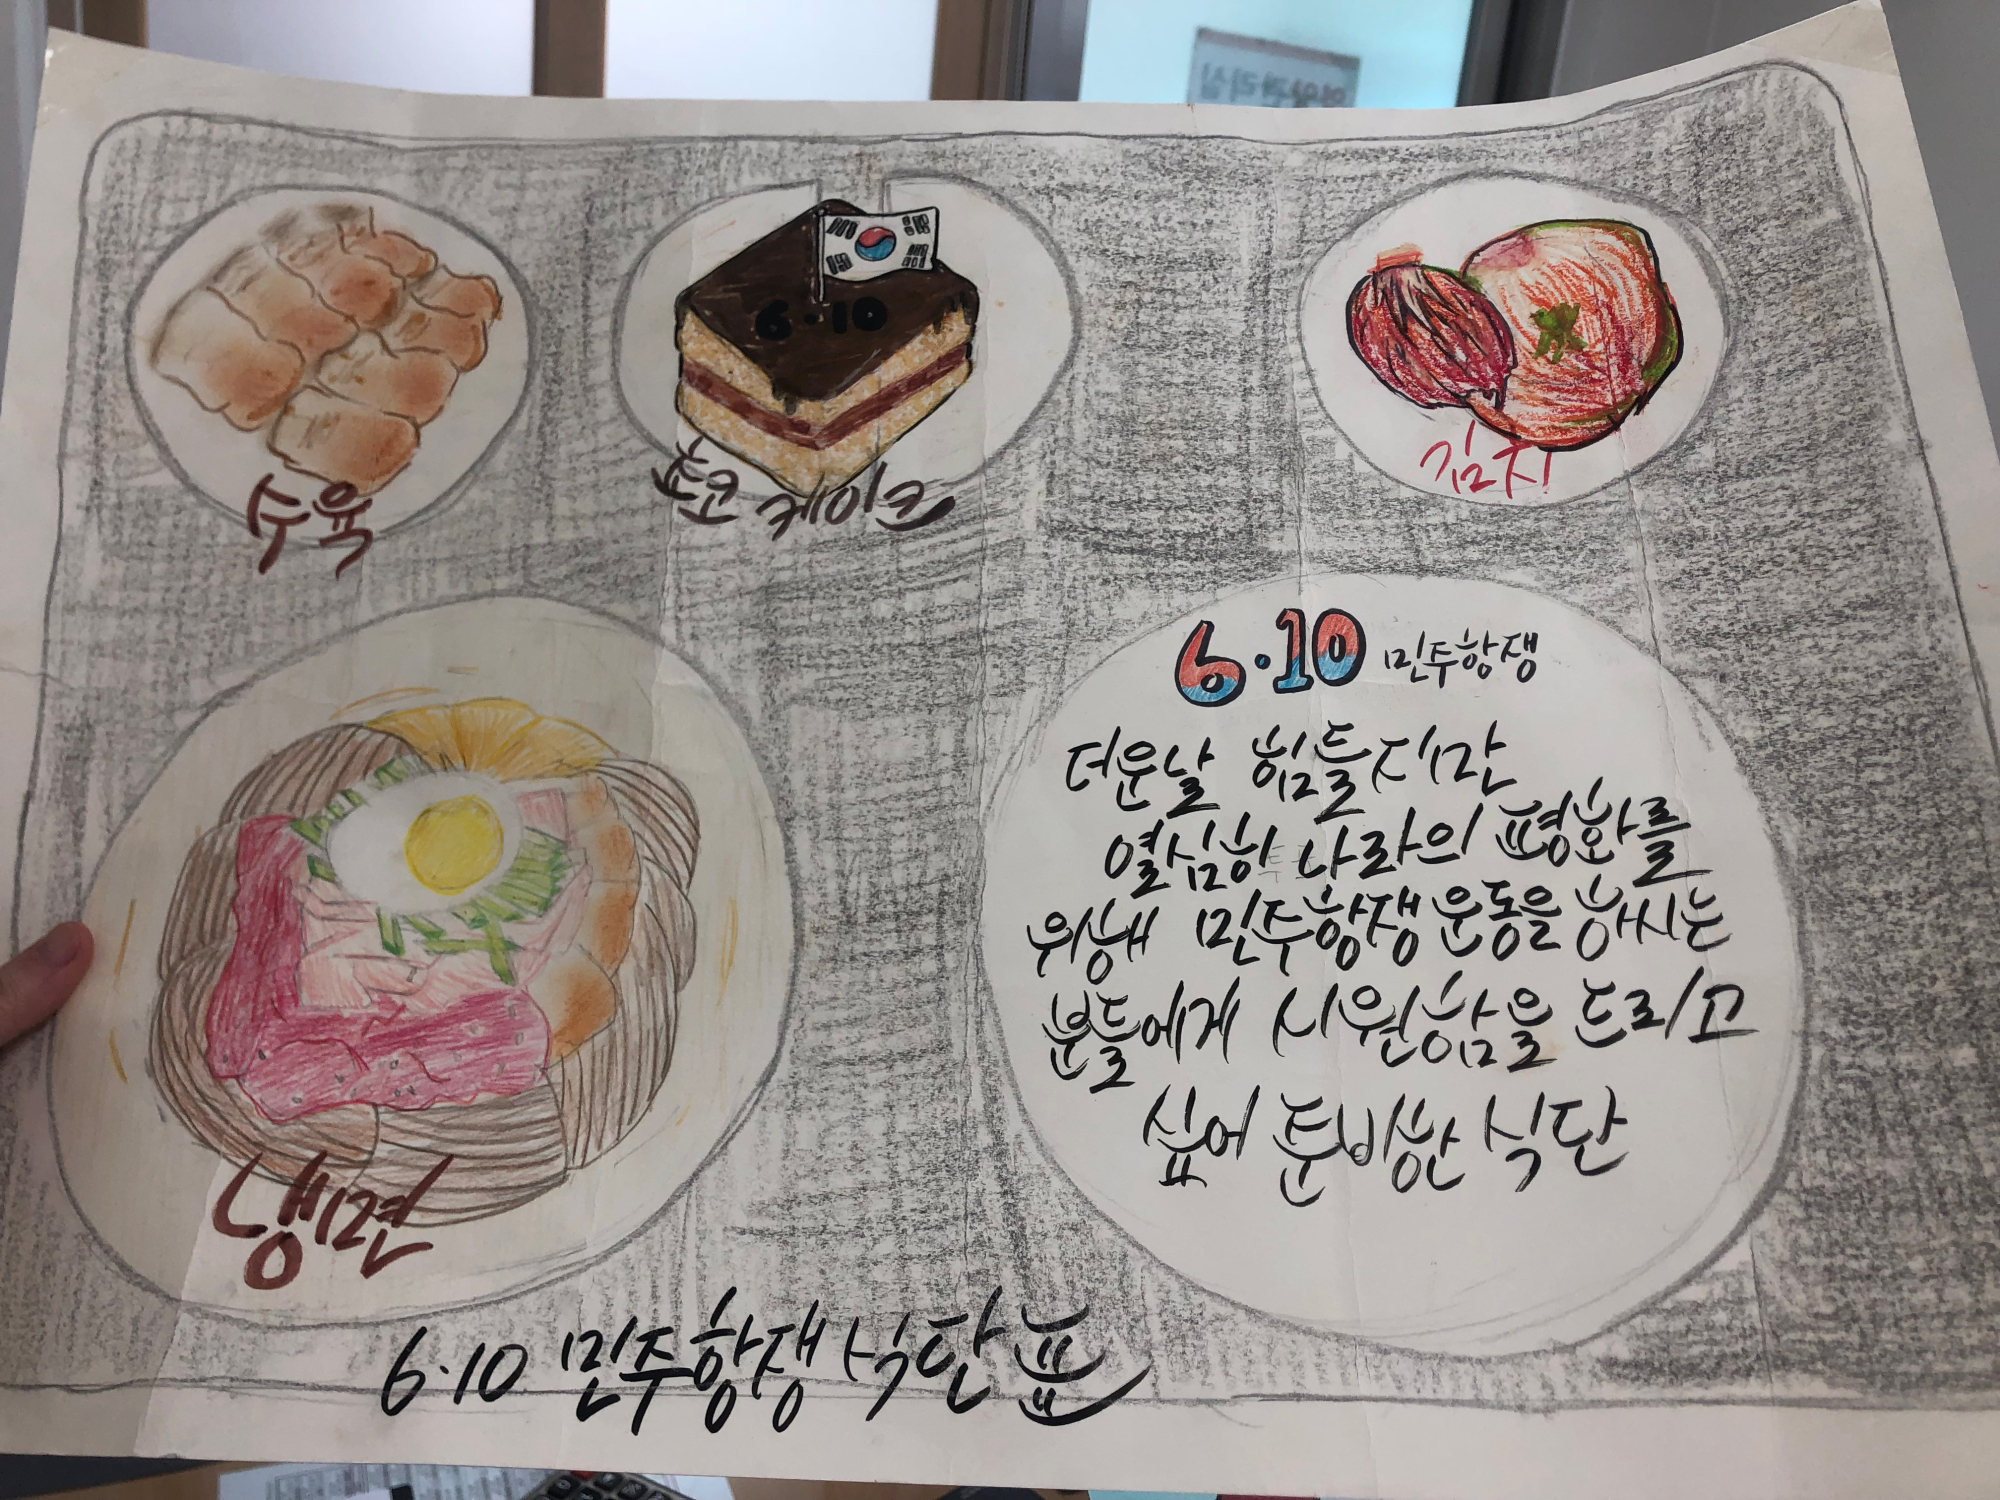 수육
6·10
초코 케이크
김치
6·10 민주항쟁
더운날 힘들지만
열심히 나라의 평화를
위해 민주항쟁 운동을 해시는
분들에게 시원함을 드리고
싶어 준비한 식단
냉면
6·10 민주항쟁 식단표